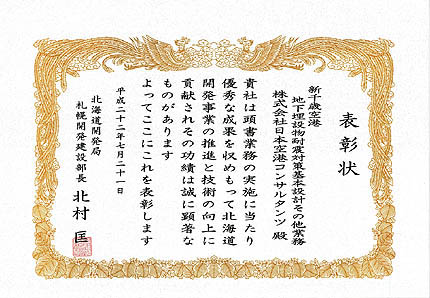 表彰状
新千歳空港
地下埋設物耐震対策基本設計その他業務
株式会社日本空港コンサルタンツ 殿
貴社は頭書業務の実施に当たり
優秀な成果を収めもって北海道
開発事業の推進と技術の向上に
貢献されその功績は誠に顕著な
ものがあります
よってここにこれを表彰します
平成二十二年七月二十一日
北海道開発局
札幌開発建設部長 北村 匡